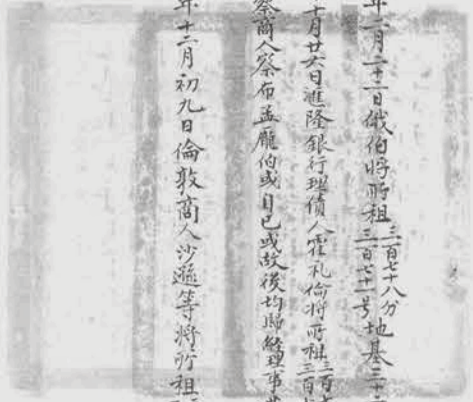 年二月二十二日俄伯將所租三百七十八分三百七十一号地基二十二
十月廿六日滙隆銀行理債人霍礼倫將所租三百七三百七
察商人察布孟龐伯或自已或故後均歸經理事
年十二月初九日倫敦商人沙遜等將所租